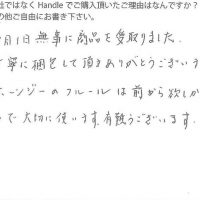 社ではなく Handle でご購入頂いたご理由はなんですか?
の他ご自由にお書き下さい。
月1日無事に商品を受取りました。
寧に梱包して頂きありがとうございう
ーンジーのフルールは前から欲しか
で大切に使います。有難うございます。